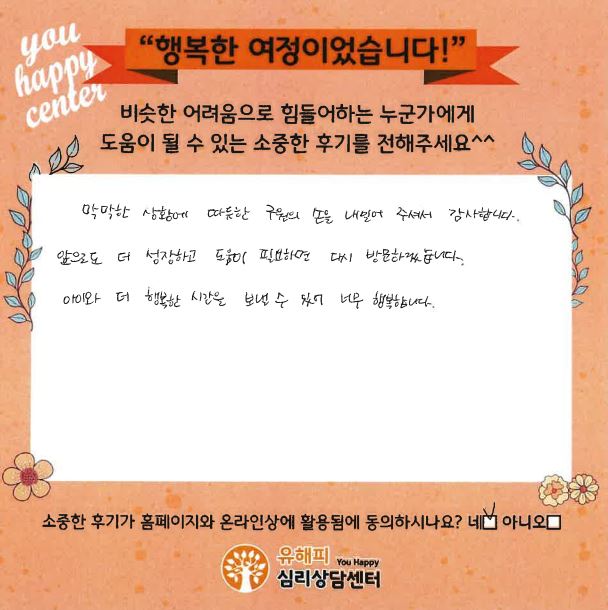 you
happy
center
“행복한 여정이었습니다!”
비슷한 어려움으로 힘들어하는 누군가에게
도움이 될 수 있는 소중한 후기를 전해주세요^^
막막한 상황에 따뜻한 구원의 손을 내밀어 주셔서 감사합니다.
앞으로도 더 성장하고 도움이 필요하면 다시 방문하겠습니다.
아이와 더 행복한 시간을 보낼 수 있어 너무 행복합니다.
소중한 후기가 홈페이지와 온라인상에 활용됨에 동의하시나요? 네☑ 아니오☐
유해피 You Happy
심리상담센터